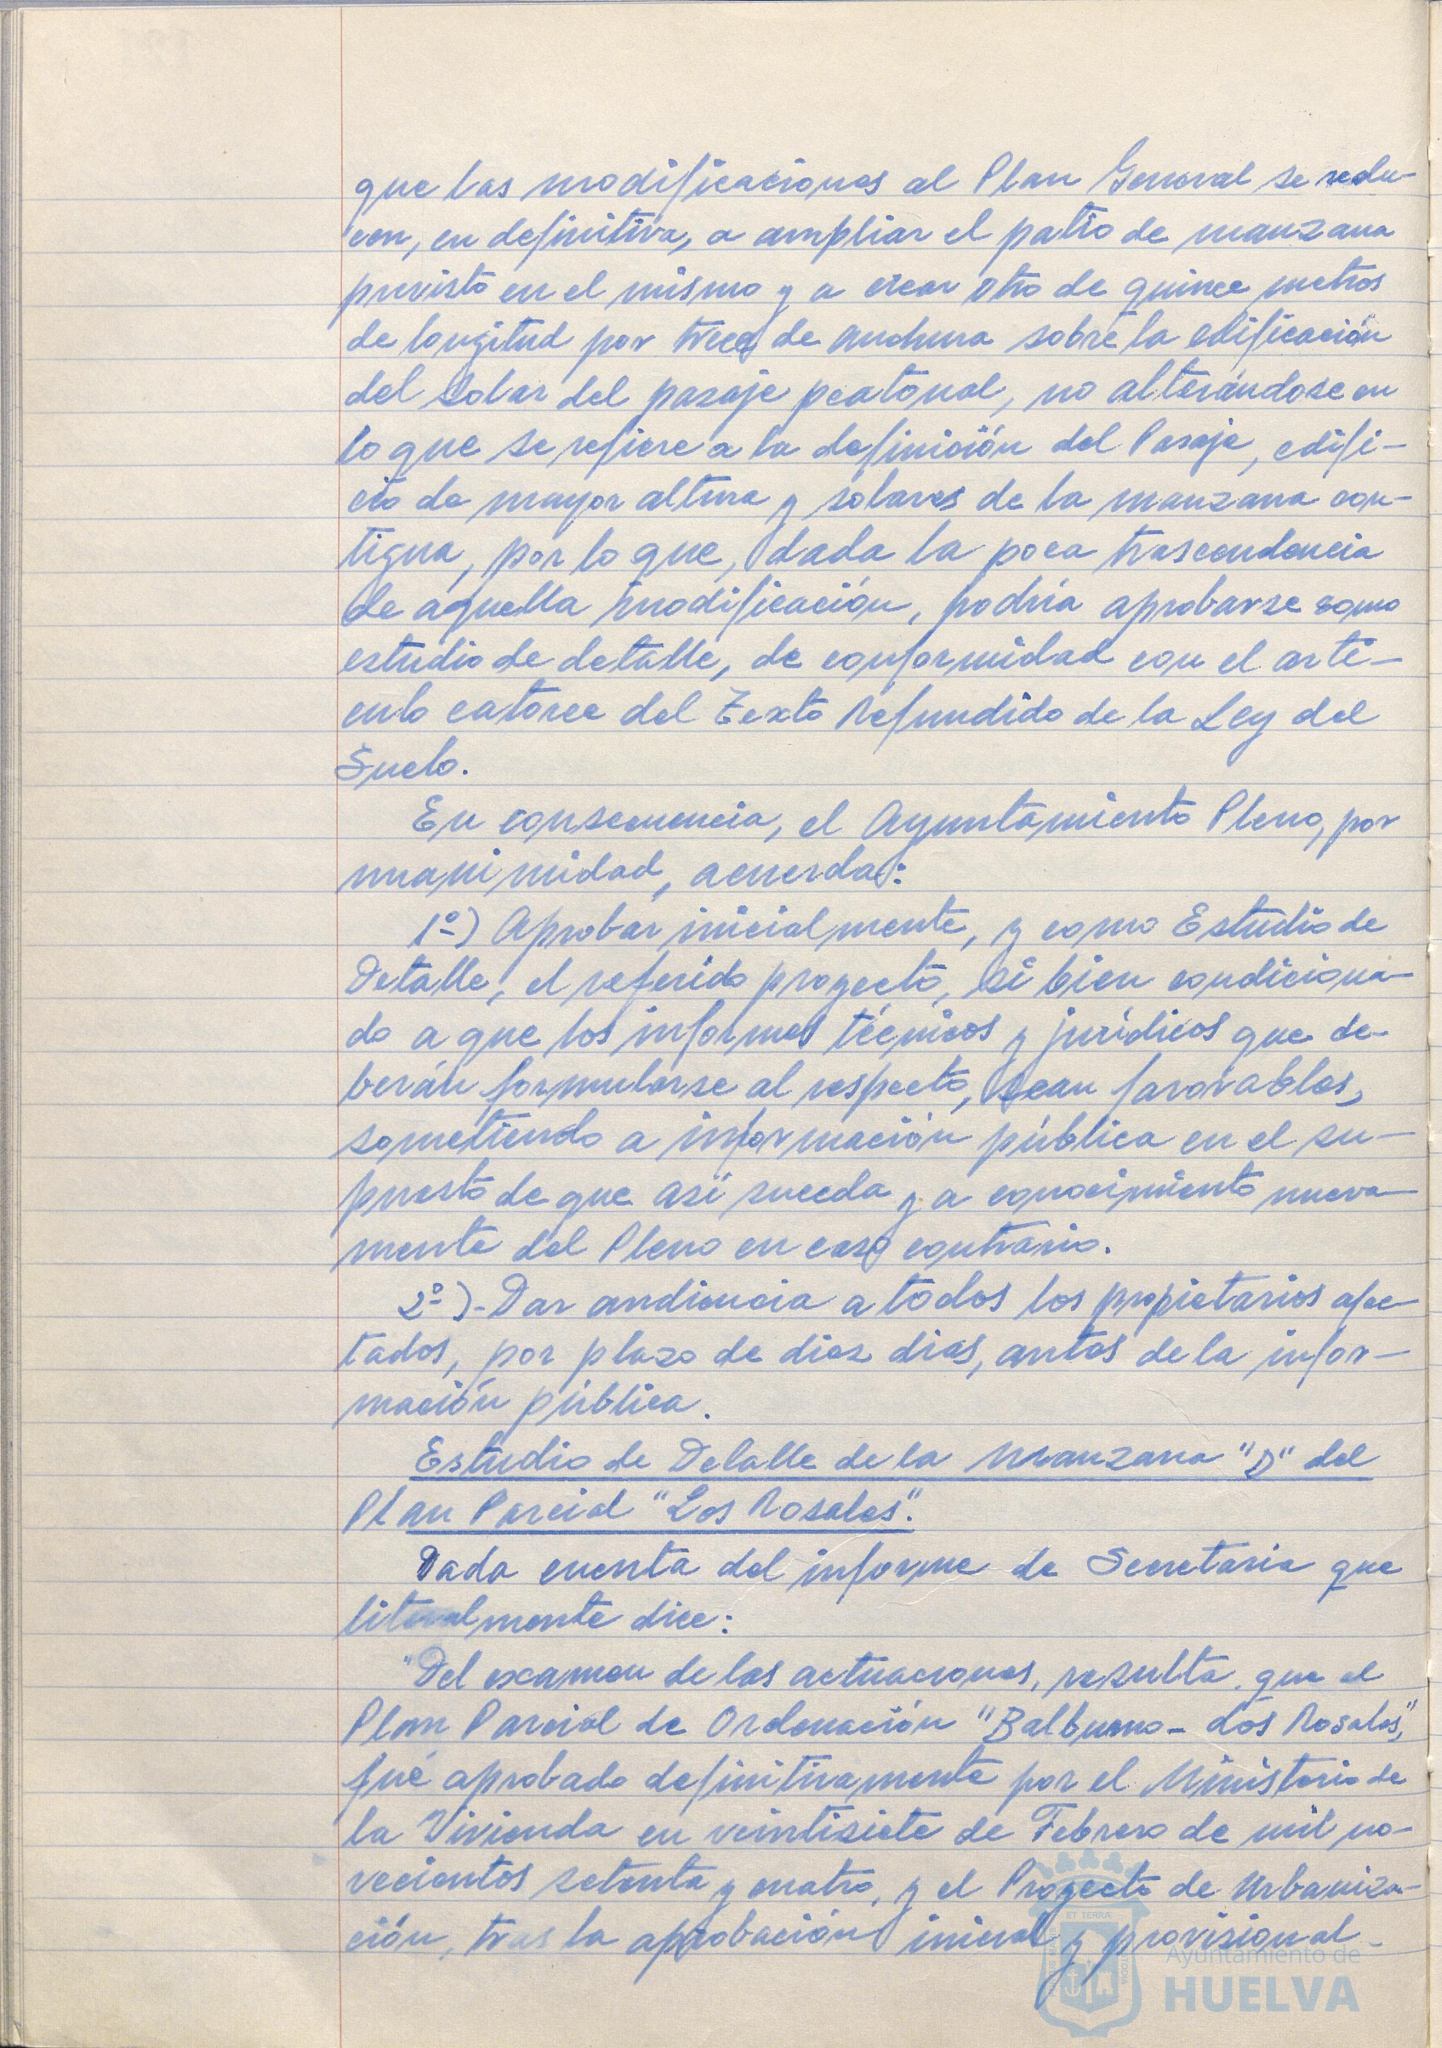 que las modificaciones al Plan General se redu-
cen, en definitiva, a ampliar el patio de manzana
previsto en el mismo y a crear otro de quince metros
de longitud por trece de anchura sobre la edificación
del solar del pasaje peatonal, no alterándose en
lo que se refiere a la definición del Pasaje, edifi-
cio de mayor altura y solares de la manzana con-
tigua, por lo que, dada la poca trascendencia
de aquella modificación, podría aprobarse como
estudio de detalle, de conformidad con el artí-
culo catorce del Texto Refundido de la Ley del
Suelo.
En consecuencia, el Ayuntamiento Pleno, por
unanimidad, acuerda:
1º) Aprobar inicialmente, y como Estudio de
Detalle, el referido proyecto, si bien condiciona-
do a que los informes técnicos y jurídicos que de-
berán formularse al respecto, sean favorables,
sometiendo a información pública en el su-
puesto de que así suceda y a conocimiento nueva-
mente del Pleno en caso contrario.
2º)- Dar audiencia a todos los propietarios afec-
tados, por plazo de diez dias, antes de la infor-
mación pública.
Estudio de Detalle de la Manzana "D" del
Plan Parcial "Los Rosales".
Dada cuenta del informe de Secretaria que
literalmente dice:
"Del examen de las actuaciones, resulta que el
Plan Parcial de Ordenación "Balbueno- Los Rosales",
fué aprobado definitivamente por el Ministerio de
la Vivienda en veintisiete de Febrero de mil no-
vecientos setenta y cuatro, y el Proyecto de Urbaniza-
ción, tras la aprobación inicial y provisional-
ET TERRA
Ayuntamiento de
HUELVA